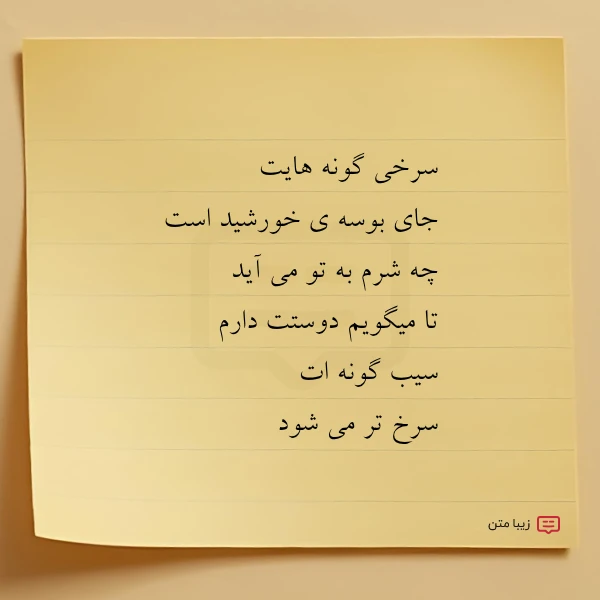 سرخی گونه هایت
جای بوسه ی خورشید است
چه شرم به تو می آید
تا میگویم دوستت دارم
سیب گونه ات
سرخ تر می شود
زیبا متن